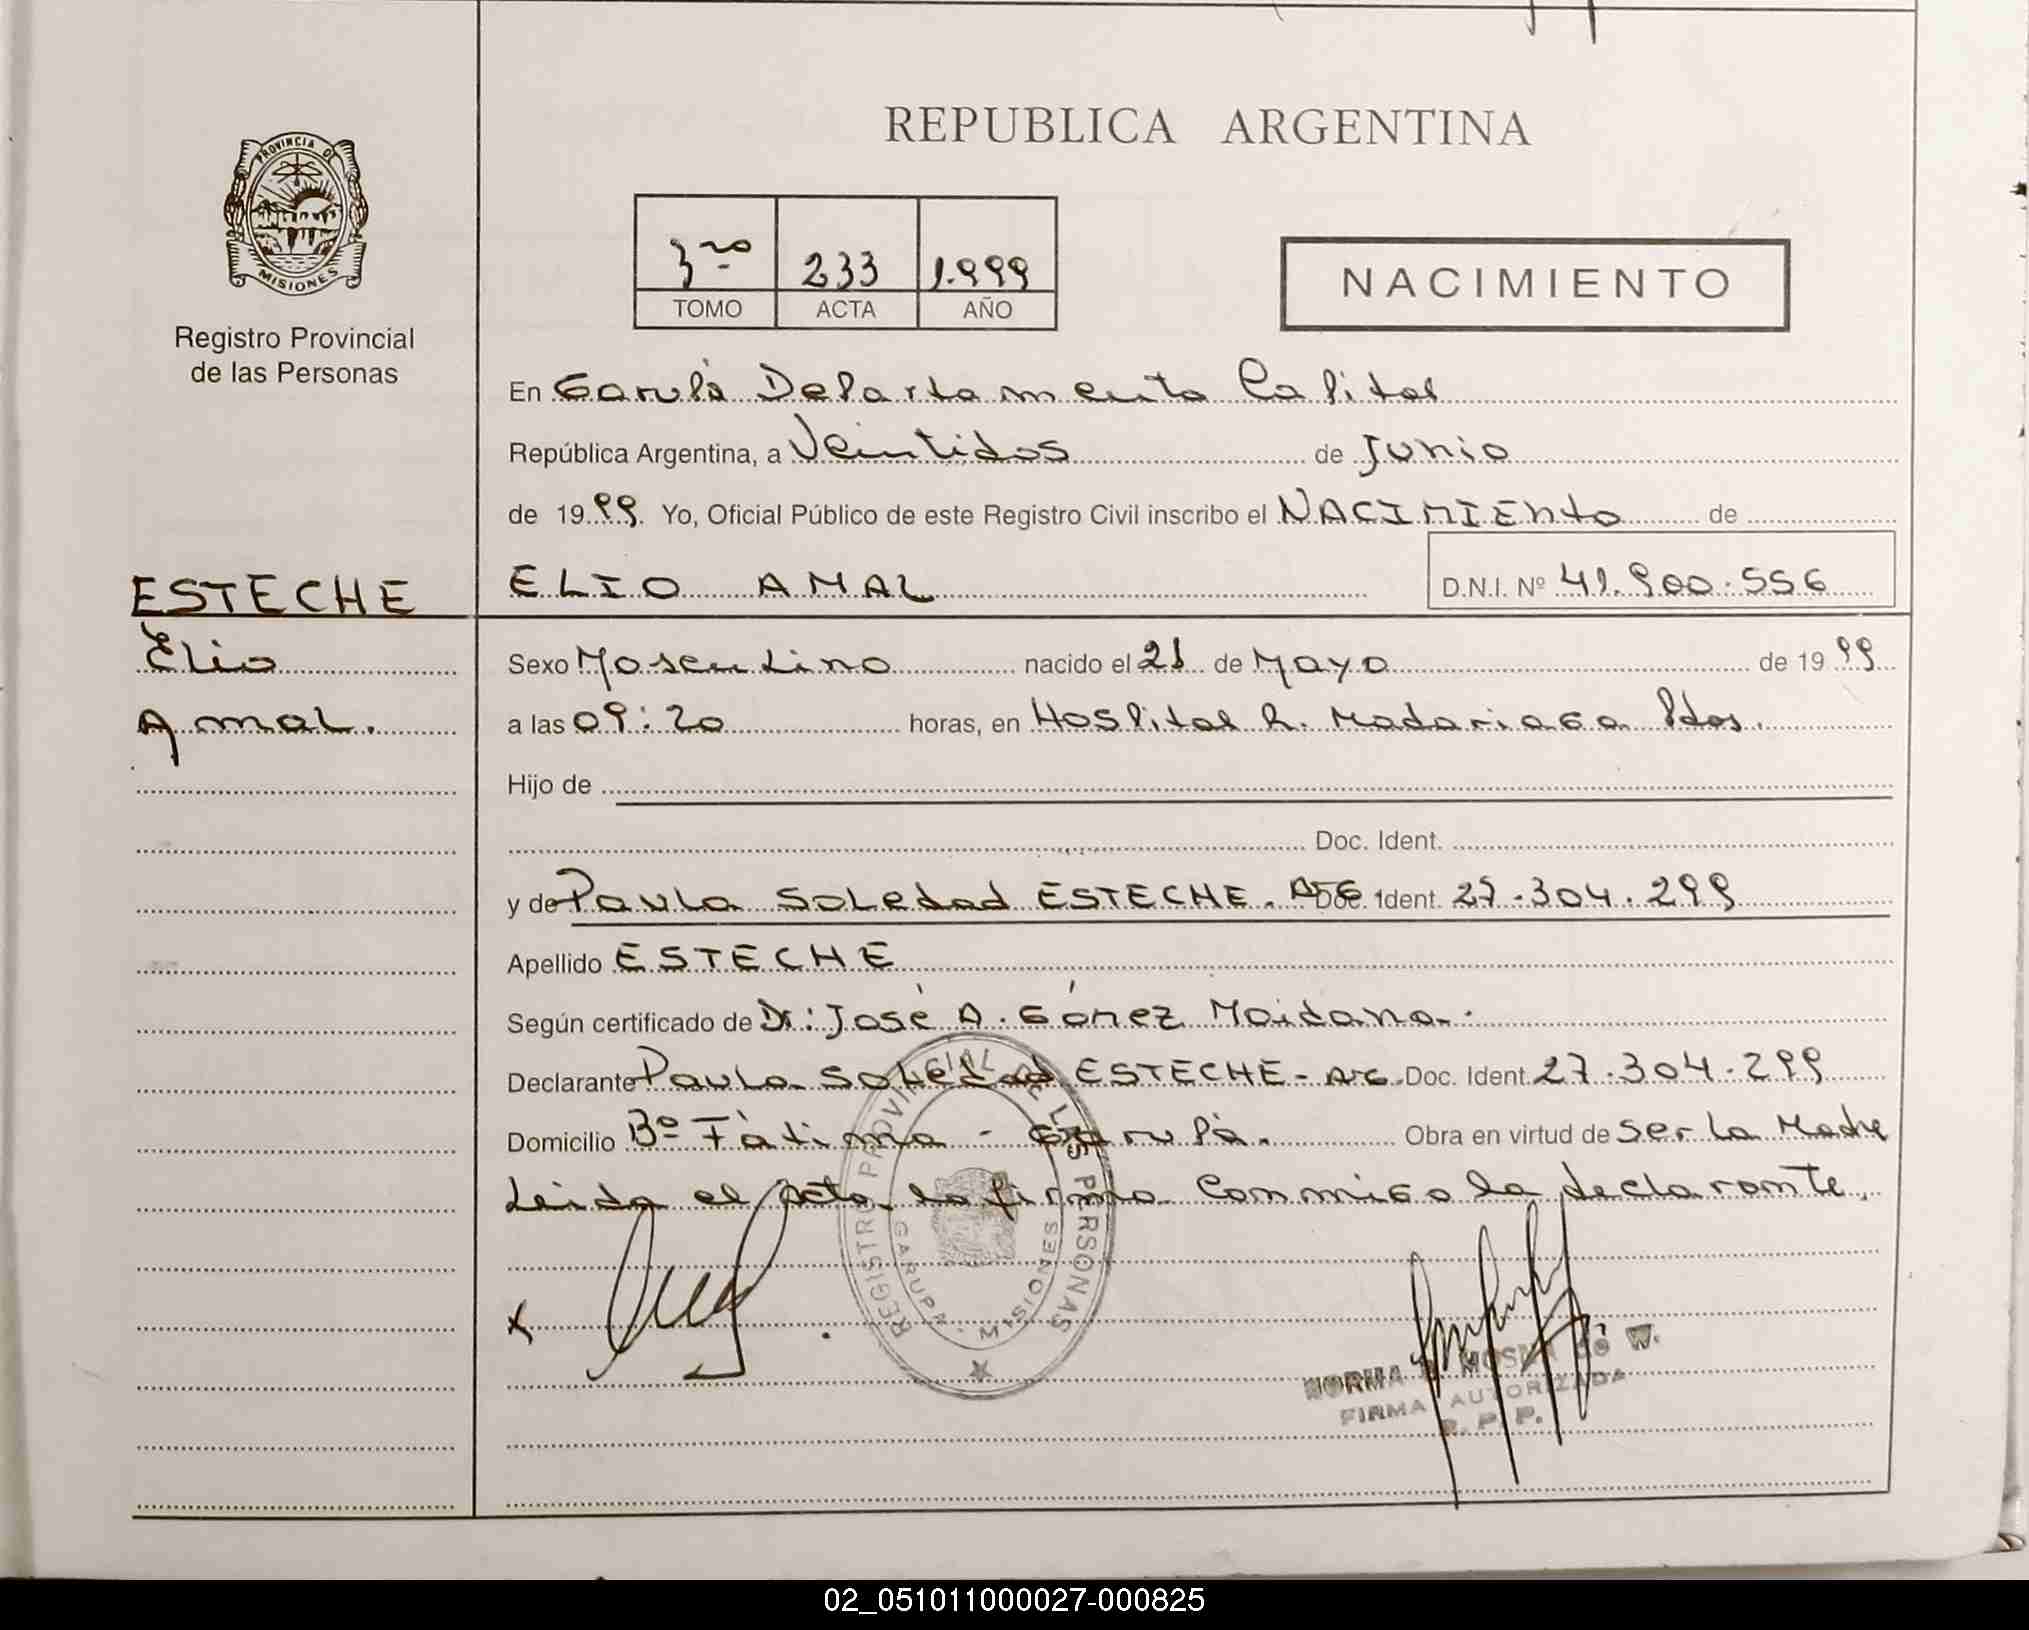 REPUBLICA ARGENTINA
PROVINCIA DE
MISIONES
Registro Provincial
de las Personas
3ro 233 1.999
TOMO ACTA AÑO
NACIMIENTO
En Garupá Departamento Capital
República Argentina, a Veintidos de Junio
de 1999. Yo, Oficial Público de este Registro Civil inscribo el NACIMIENTO de
ESTECHE ELIO AMAL D.N.I. Nº 41.900.556
Elio Sexo Masculino nacido el 21 de Mayo de 1999
Amal. a las 09:20 horas, en Hospital R. Madariaga Pdas.
Hijo de
Doc. Ident.
y de Paula Soledad ESTECHE. ARG Doc. Ident. 27.304.299
Apellido ESTECHE
Según certificado de Dr: José A. Gómez Maidana.
Declarante Paula Soledad ESTECHE - ARG. Doc. Ident. 27.304.299
Domicilio Bº Fátima - Garupá. Obra en virtud de ser la Madre
Leida el acta la firma conmigo la declarante.
REGISTRO PROVINCIAL DE LAS PERSONAS
GARUPA - MISIONES
x
NORMA MOSNA de W.
FIRMA AUTORIZADA
R. P. P.
02_051011000027-000825